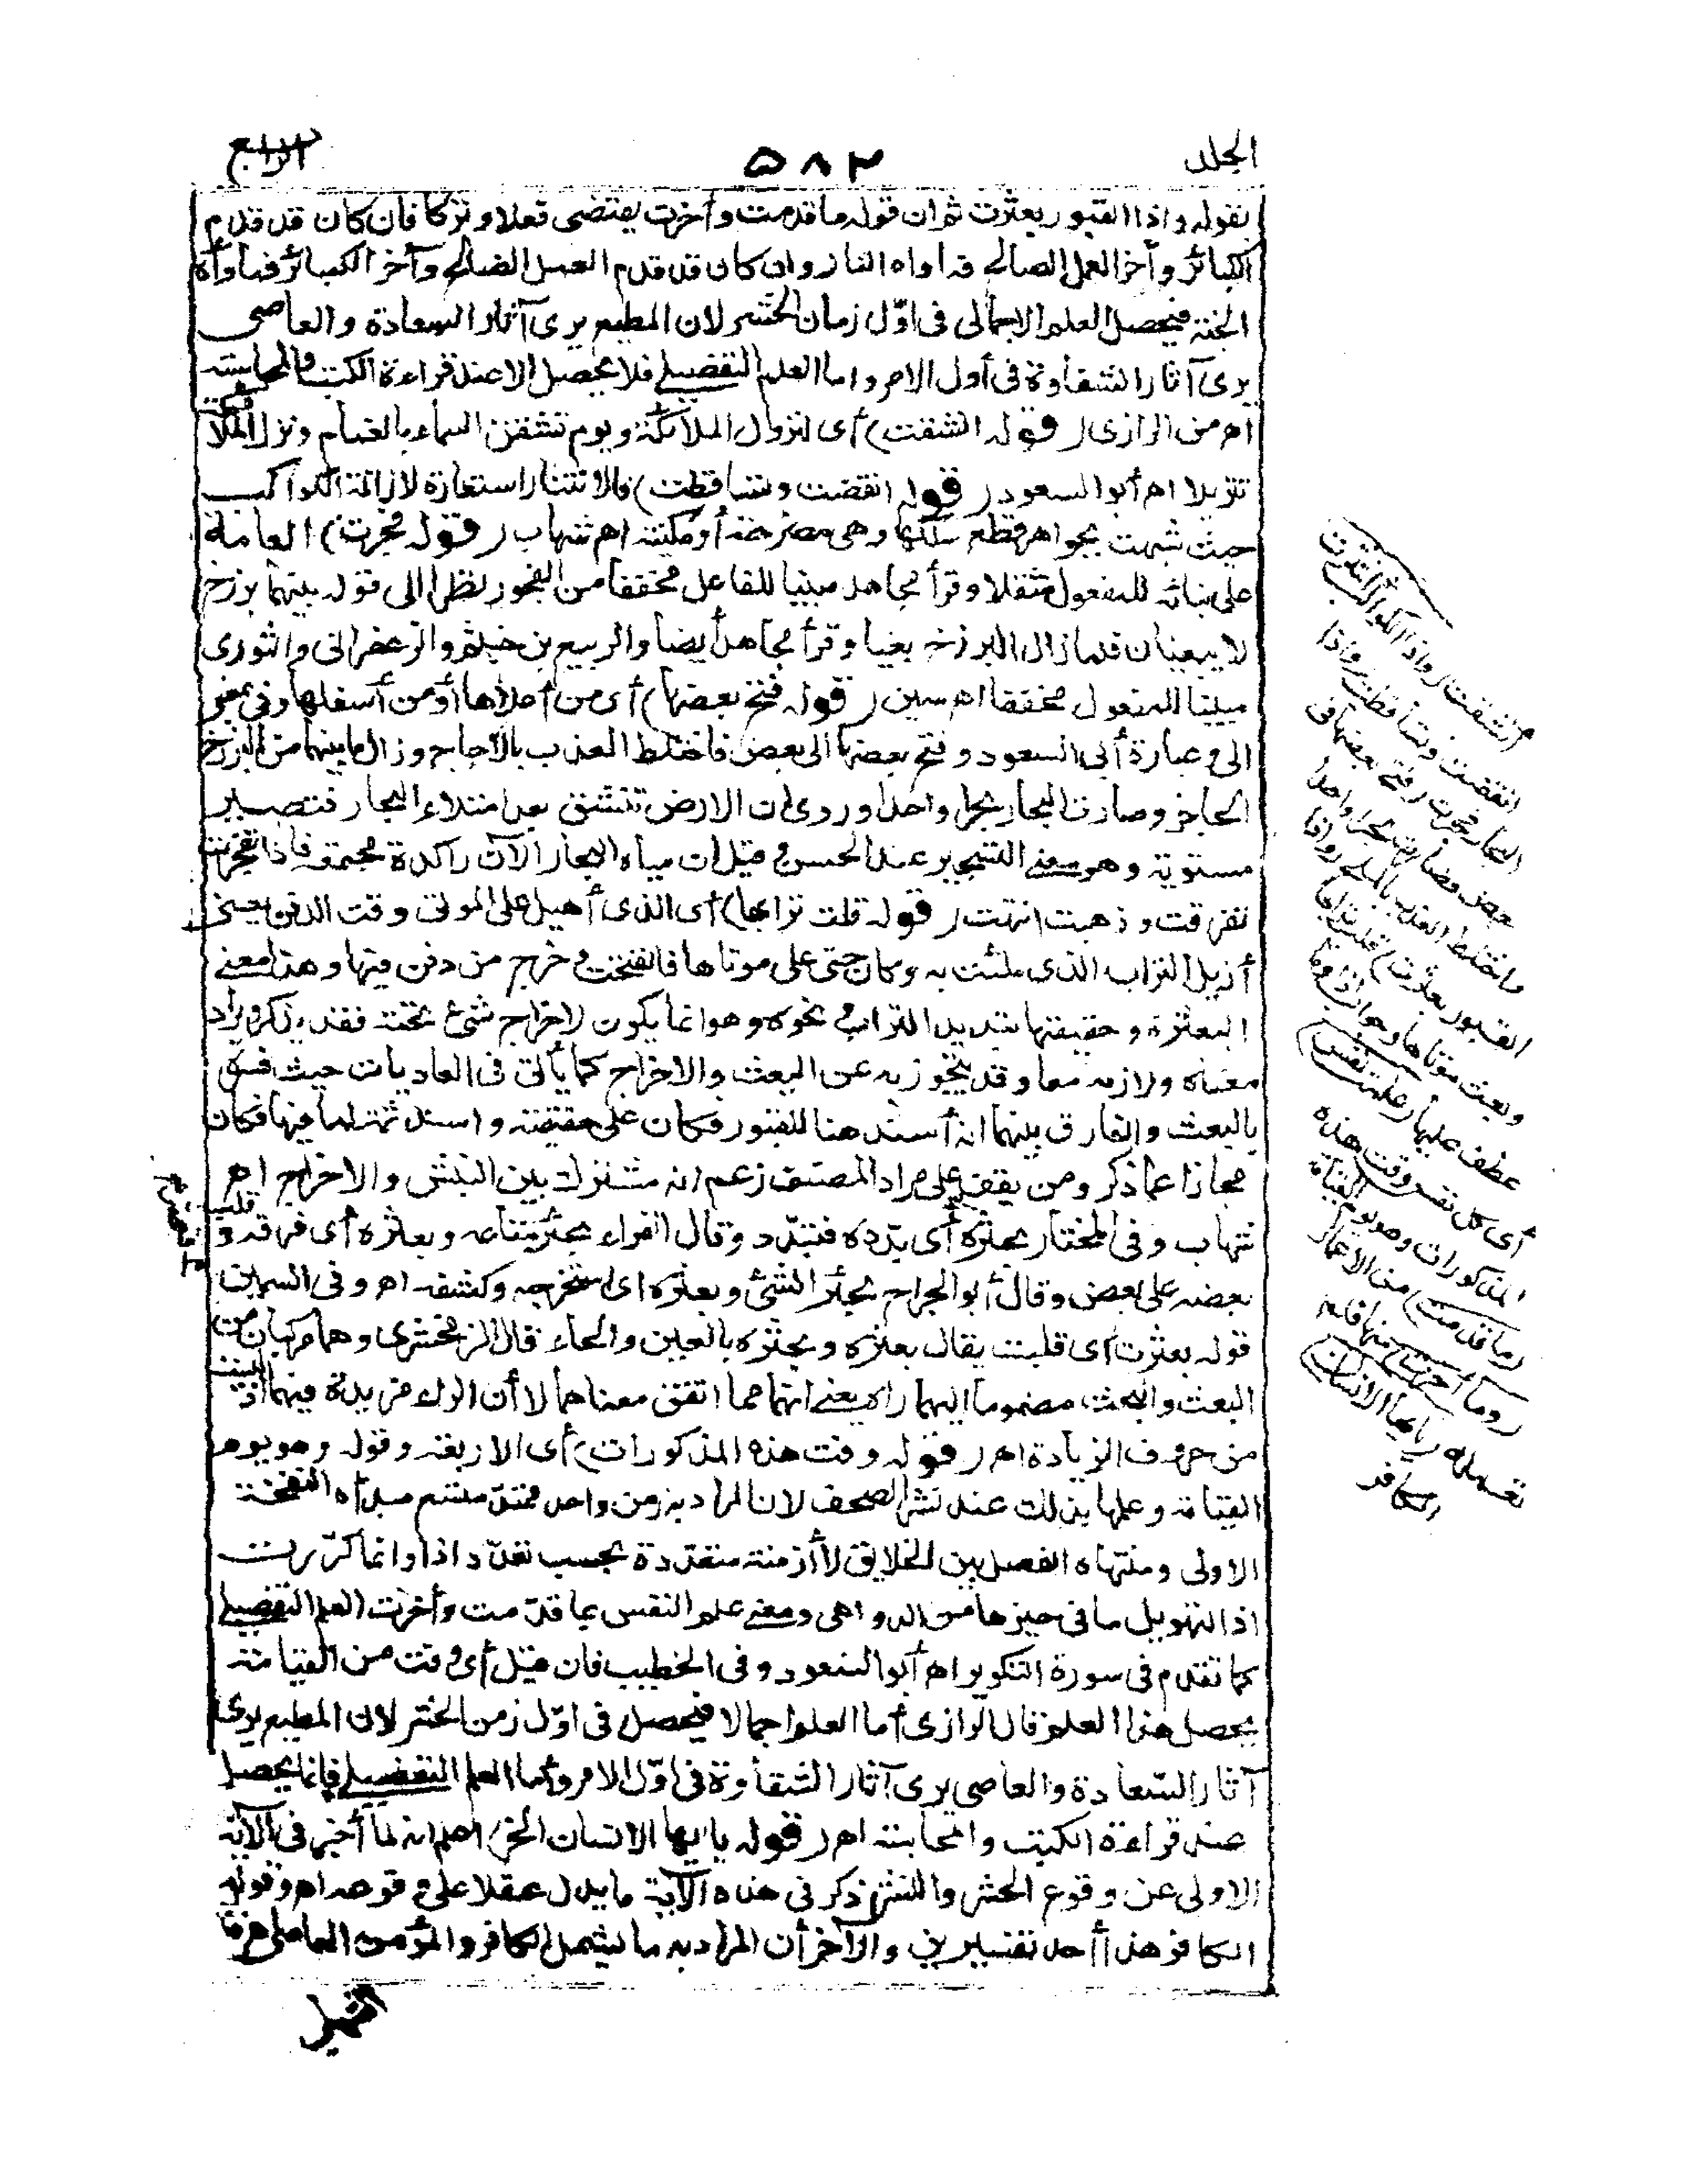 الجلد ٥٨٢ الرابع
بقوله واذا القبور بعثرت ثم ان قوله ما قدمت وأخرت يقتضى فعلا وتركا فان كان قد قدم
الكبائر وأخر العمل الصالح فمأواه النار وان كان قد قدم العمل الصالح وأخر الكبائر فمأواه
الجنة فيحصل العلم الاجمالى فى اوّل زمان الحشر لان المطيع يرى آثار السعادة والعاصى
يرى آثار الشقاوة فى أول الامر واما العلم التفصيلى فلا يحصل الا عند قراءة الكتب والمحاسبة
اه من الرازى (قوله انشقت) أى لنزول الملائكة ويوم تشقق السماء بالغمام ونزل الملائكة
تنزيلا اه أبوالسعود (قوله انقضت وتساقطت) والانتثار استعارة لازالة الكواكب
حيث شبهت بجواهر قطع سلكها وهى مصرحة أو مكنية اه شهاب (قوله فجرت) العامة
على بنائه للمفعول مثقلا وقرأ مجاهد مبنيا للفاعل مخففا من الفجور نظرا الى قوله بينهما برزخ
لا يبغيان فلما زال البرزخ بغيا وقرأ مجاهد أيضا والربيع بن خيثم والزعفرانى والثورى
مبنيا للمفعول مخففا اه سمين (قوله فتح بعضها) أى من أعلاها أو من أسفلها وفى بمعنى
الى وعبارة أبى السعود وفتح بعضها الى بعض فاختلط العذب بالاجاج وزال ما بينهما من البرزخ
الحاجز وصارت البحار بحرا واحدا وروى ان الارض تنشق بعد امتلاء البحار فتصير
مستوية وهو معنى التسجير عند الحسن وقيل ان مياه البحار الآن راكدة مجتمعة فاذا تفجرت
تفرقت وذهبت انتهت (قوله قلبت ترابها) أى الذى أهيل على الموتى وقت الدفن يعنى
أزيل التراب الذى ملئت به وكان حثى على موتاها فانفتحت وخرج من دفن فيها وهذا معنى
البعثرة وحقيقتها تبديد التراب ونحوه وهو انما يكون لاخراج شئ تحته فقد يذكر ويراد
معناه ولازمه معا وقد يتجوز به عن البعث والاخراج كما يأتى فى العاديات حيث فسر
بالبعث والفارق بينهما انه أسند هنا للقبور فكان على حقيقته واسند ثمة لما فيها فكان
مجازا عما ذكر ومن يقف على مراد المصنف زعم انه مشترك بين النبش والاخراج اه
شهاب وفى المختار بعثره أى بدّده فتبدّد وقال الفراء بعثر متاعه وبعثره أى فرقه و
قلب
بعضه على بعض وقال أبو الجراح بحثر الشئ وبعثره اى استخرجه وكشفه اه وفى السمين
قوله بعثرت اى قلبت يقال بعثره وبحثره بالعين والحاء قال الزمخشرى وهما مركبان من
البعث والبحث مضموما اليهما راء يعنى انهما مما اتفق معناهما لا أن الراء مزيدة فيهما اذ ليست
من حروف الزيادة اه (قوله وقت هذه المذكورات) أى الاربعة وقوله وهو يوم
القيامة وعلمها بذلك عند نشر الصحف لان المراد به زمن واحد ممتد متسع مبدأه النفخة
الاولى ومنتهاه الفصل بين الخلايق لا أزمنة متعددة بحسب تعدّد اذا وانما كرّرت
اذا لتهويل ما فى حيزها من الدواهى ومعنى علم النفس بما قدّمت وأخرت العلم التفصيلى
كما تقدم فى سورة التكوير اه أبو السعود وفى الخطيب فان قيل أى وقت من القيامة
يحصل هذا العلم قال الرازى أما العلم اجمالا فيحصل فى اوّل زمن الحشر لان المطيع يرى
آثار السّعادة والعاصى يرى آثار الشقاوة فى اوّل الامر وأما العلم التفصيلى فانما يحصل
عند قراءة الكتب والمحاسبة اه (قوله يا ايها الانسان الخ) اعلم انه لما أخبر فى الآية
الاولى عن وقوع الحشر والنشر ذكر فى هذه الآية ما يدل عقلا على وقوعه اه وقوله
الكافر هذا أحد تفسيرين والآخر أن المراد به ما يشمل الكافر والمؤمن العاصى
انشقت (واذا الكواكب انتثرت)
انقضت وتساقطت (واذا
البحار فجرت) فتح بعضها فى
بعض فصارت بحرا واحدا
واختلط العذب بالملح (واذا
القبور بعثرت) قلبت ترابها
وبعث موتاها وجواب اذا وما
عطف عليها (علمت نفس)
أى كل نفس وقت هذه
المذكورات وهو يوم القيامة
(ما قدمت) من الاعمال
(و) ما (أخرت) منها فلم
تعمله (يا أيها الانسان)
الكافر